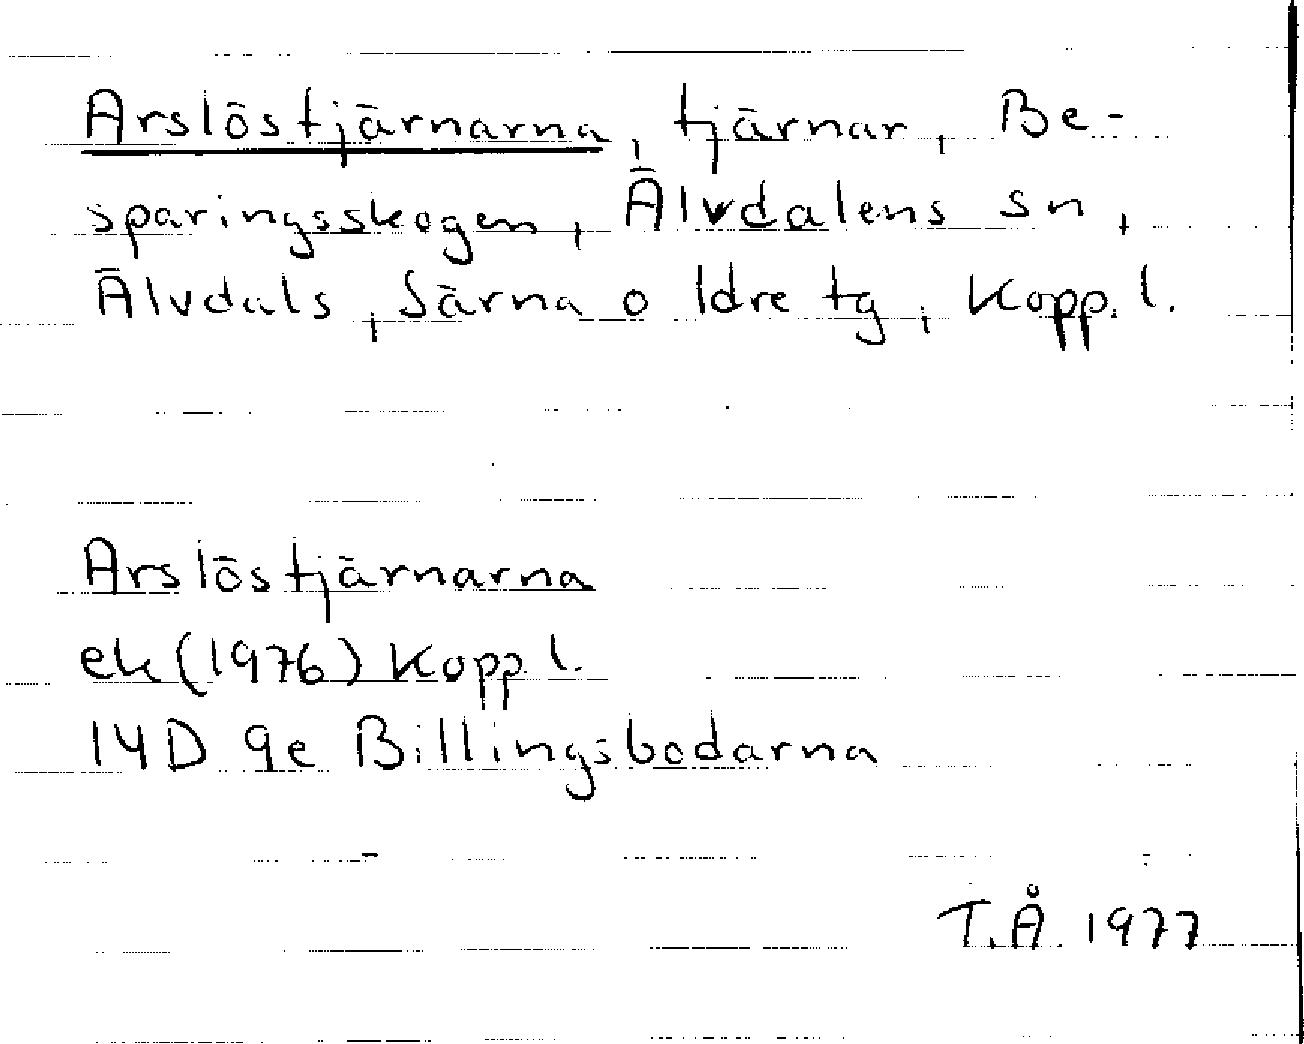 Arslöstjärnarna, tjärnar, Be-
sparingsskogen, Älvdalens sn,
Älvdals, Särna o Idre tg, Kopp. l.
Arslöstjärnarna
ek (1976) Kopp l.
14D 9e Billingsbodarna
T.Å. 1977